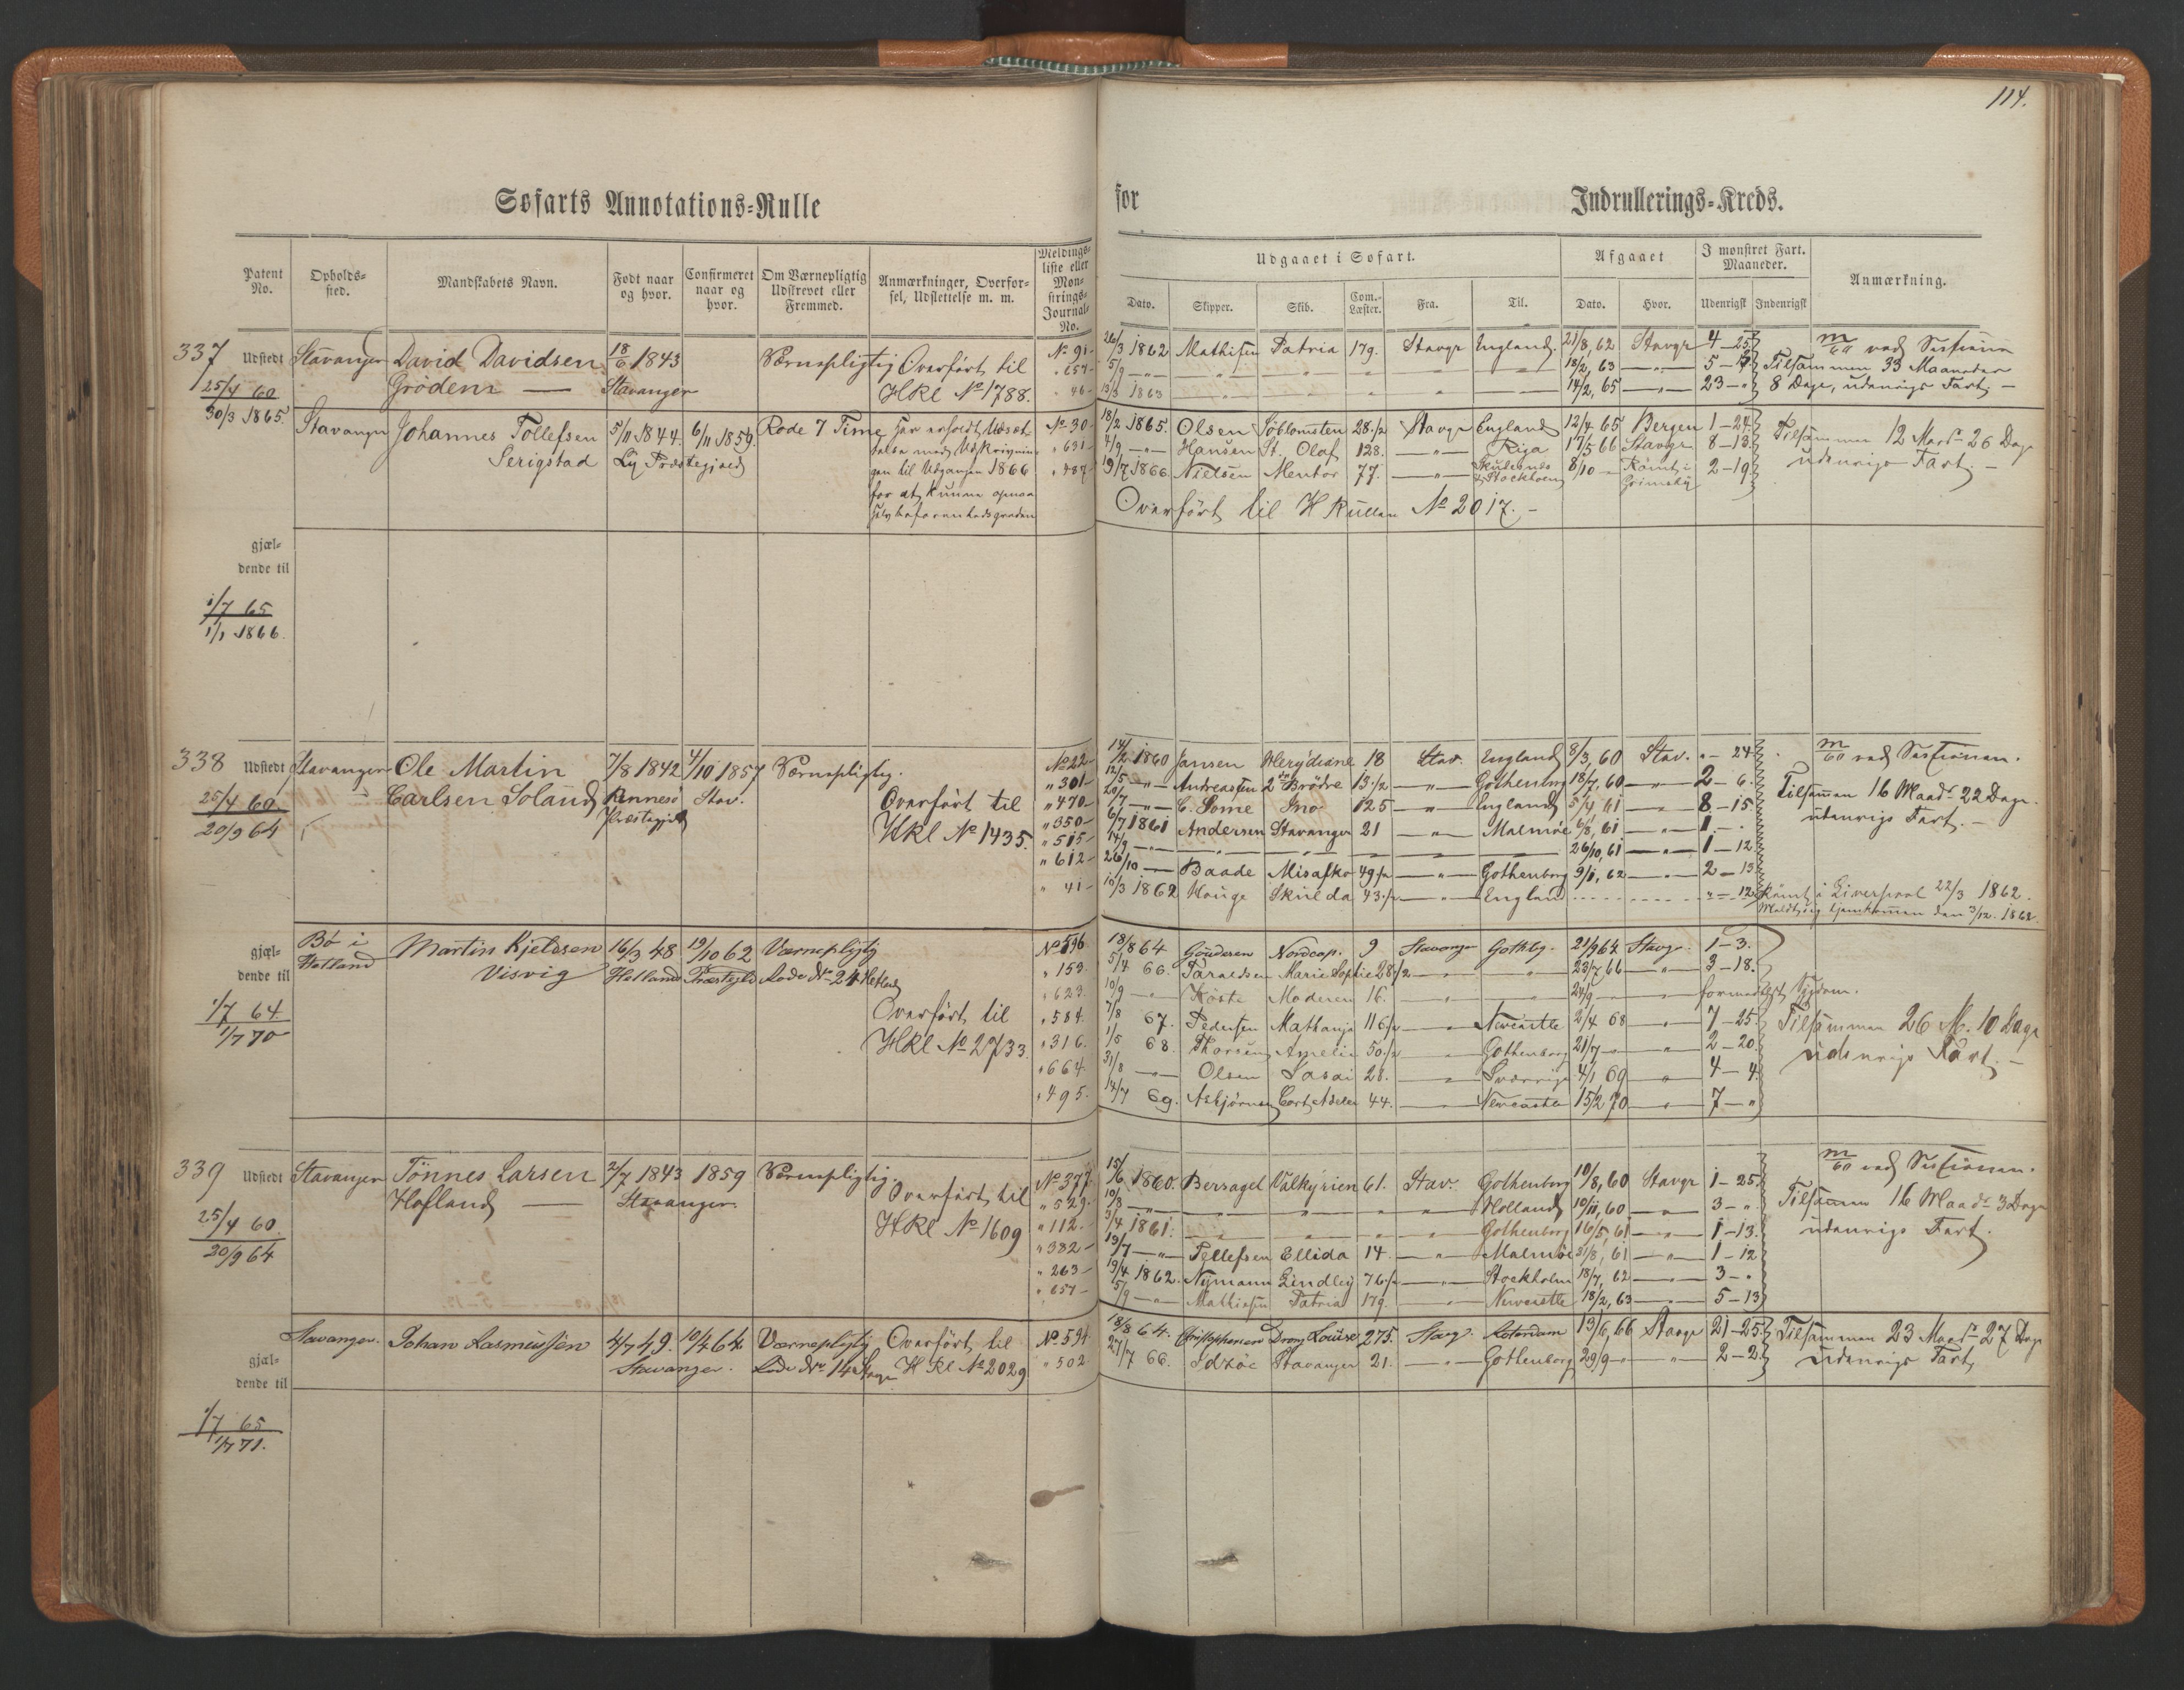 114.
Søfarts Annotations-Rulle for Indrullerings-Kreds.
Patent No.
Opholds-sted.
Mandskabets Navn.
Født naar og hvor.
Confirmeret naar og hvor.
Om Værnepligtig Udskrevet eller Fremmed.
Anmærkninger, Overførsel, Udslettelse m. m.
Meldings-liste eller Mønstrings-Journal-No.
Udgaaet i Søfart.
Dato. Skipper. Skib. Com.-Læster. Fra. Til.
Afgaaet
Dato. Hvor.
I mønstret Fart. Maaneder.
Udenrigsk Indenrigsk
Anmærkning.
337 Udstedt Stavanger David Davidsen 18/6 1843 Værnepligtig Overført til No 91 26/3 1862 Mathisen Patria 179. Stavgr England 21/8, 62 Stavgr 4-25
25/4 60 Grødem — Stavanger HRl No 1788. " 657 5/9 —"— 18/2, 63 5-
30/3 1865. " 46 13/3 1863 14/2, 65 23-"
m/60 ved Sessionen
Tilsammen 33 Maaneder
8 Dage, udenrigs Fart. —
Stavanger Johannes Tollefsen 5/11 1844. 6/11 1859. Rode 7 Time Har erholdt Udsæt- No 30 18/2 1865. Olsen Søblomsten 28 1/2 Stavgr England 12/4 65 Bergen 1-24
Serigstad Ly Præstegjæld telse med Udskrivnin- " 631 4/9 —"— Hansen St. Olaf 128. —"— Riga 17/5 66 Stavgr 8-13.
gen til Udgangen 1866 " 487 19/7 1866 Nielsen Mentor 77. —"— Stockholm 8/10 Rømt i Grimsby 2-19
for at kunne opnaa
Tilsammen 12 Maadr 26 Dage
udenrigs Fart. —
Overført til H Rullen No 2017. —
gjæl-
dende til
1/7 65
1/1 1866.
338 Udstedt Stavanger Ole Martin 7/8 1842 4/10 1857 Værnepligtig. No 22 14/2 1860 Jansen 18 Stav. England 8/3, 60 Stav. "-24
25/4 60 Carlsen Soland Rennesø Stav. Overført til " 301 12/5 —"— Andreassen 2de Brødre 13 1/2 —"— Gothenborg 18/7, 60 —"— 2-6.
20/9 64 Præstegjeld HRl No 1435. " 470 20/7 —"— C. Somme Ino 125 —"— England 5/4 61 —"— 8-15
" 350 6/7 1861 Andersen Stavanger 21 —"— Malmøe 6/8, 61 —"— 1-"
" 515 14/9 —"— 26/10, 61 —"— 1-12
" 612 26/10 —"— Baade 49 1/2 —"— Gothenborg 9/1, 62 —"— 2-13
" 41 10/3 1862 Hauge Skulda 43 1/2 —"— England "-12
m/60 ved Sessionen.
Tilsammen 16 Maadr 22 Dage
udenrigs Fart. —
Rømt i Liverpool 22/3 1862.
Meldt sig hjemkommen den 3/12. 1862.
gjæl-
dende til
1/7 64
1/7 70
Bø i Hetland Martin Kjeldsen 16/3 48 19/10 62 Værnepligtig No 596 18/8 64 Nordcap. 9 Stavanger Gothbg. 21/9 64 Stavgr. 1-3.
Visvig Hetland Præstegjeld Rode No 24 Hetland " 159 5/4 66. Taraldsen Marie Sophie 28 1/2 23/7 66 3-18.
" 623. 10/9 —"— Moderen 16. 24/9 formedelst Sygdom.
Overført til " 584 1/8 67. Pedersen 116 1/2 Newcastle 2/4 68 7-25.
HRl No 2733. " 316. 1/5 68. Amelia 50 1/2 Gothenborg 21/7 2-20
" 664 31/8 —"— Olsen 28. Sverrige 4/1 69 4-4
" 495. 14/7 69. Asbjørnsen Cort Adeler 44. Newcastle 15/2 70 7-"
Tilsammen 26 M. 10 Dage
udenrigs Fart. —
339 Udstedt Stavanger Tønnes Larsen 2/7 1843 1859 Værnepligtig. No 377 15/6 1860. Bersagel Valkyrien 61. Stav. Gothenborg 10/8, 60 Stavgr 1-25.
25/4 60. Hofland — Stavanger. Overført til " 529. 10/8 —"— Holland 10/11, 60 3-"
20/9 64 HRl No 1609 " 112. 3/4 1861. Gothenborg 16/5, 61 1-13.
" 382 19/7 —"— Tellefsen Ellida 14. —"— Malmøe 31/8, 61 —"— 1-12
" 263 19/4 1862. Nymann Lindley 76 1/2 Stockholm 18/7, 62 3-"
" 657 5/9 —"— Mathiesen Patria 179. Newcastle 18/2, 63 5-13
m/60 ved Sessionen.
Tilsammen 16 Maadr 3 Dage
udenrigs Fart.
Stavanger. Johan Rasmussen 4/7 49. 10/4 64 Værnepligtig Overført til No 594 18/8 64. Christophersen Drong Louise 275. Stavg. Roterdam 13/6, 66 Stavgr 21-25
Stavanger. Rode No 14 HRl No 2029 " 502 27/7 66. Idsøe Stavanger 21. Gothenborg 29/9 2-2
Tilsammen 23 Maadr 27 Dage
udenrigs Fart
gjæl-
dende til
1/7 65
1/7 71.